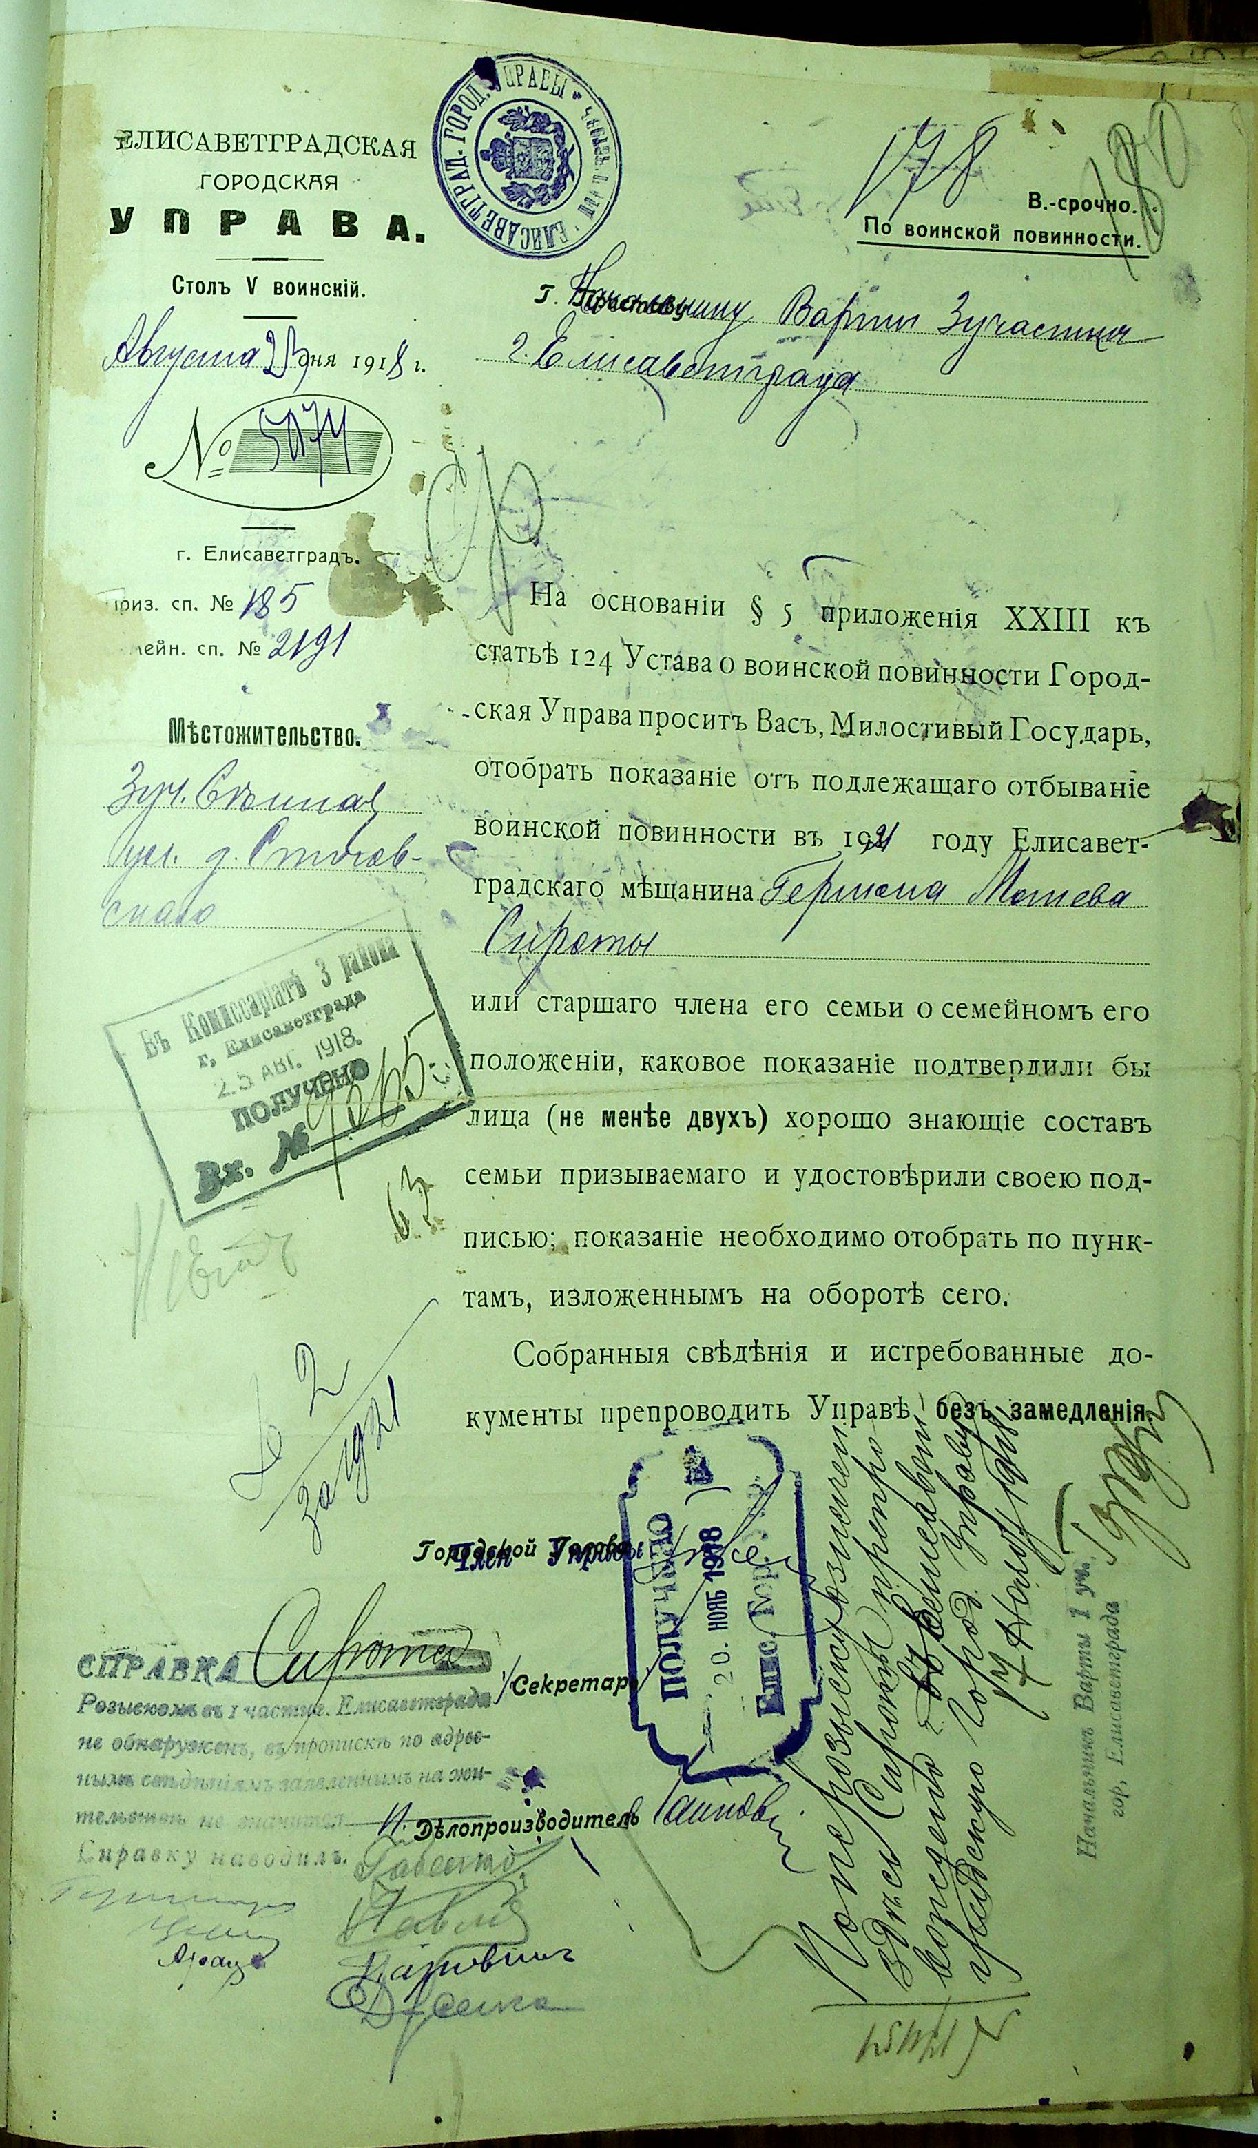 ЕЛИСАВЕТГРАДСКАЯ
ГОРОДСКАЯ
УПРАВА.
Столъ V воинскій.
Августа 23 дня 1918 г.
№ 5074
г. Елисаветградъ.
приз. сп. № 185
мейн. сп. № 2191
Мѣстожительство.
3 уч.
ул. д.
178
180
В.-срочно.
По воинской повинности.
Г. Начальнику Варты 3 участка
г. Елисаветграда
На основаніи § 5 приложенія XXIII къ
статьѣ 124 Устава о воинской повинности Город-
ская Управа проситъ Васъ, Милостивый Государь,
отобрать показаніе отъ подлежащаго отбываніе
воинской повинности въ 1921 году Елисавет-
градскаго мѣщанина Германа Мошева
Сироты
или старшаго члена его семьи о семейномъ его
положеніи, каковое показаніе подтвердили бы
лица (не менѣе двухъ) хорошо знающіе составъ
семьи призываемаго и удостовѣрили своею под-
писью; показаніе необходимо отобрать по пунк-
тамъ, изложеннымъ на оборотѣ сего.
Собранныя свѣдѣнія и истребованные до-
кументы препроводить Управѣ безъ замедленія
Въ Комиссаріатѣ 3 района
г. Елисаветграда
23 АВГ. 1918.
ПОЛУЧЕНО
Вх. № 9365
63
2
за 1921
Городской Голова
Член Управы
Секретарь
Дѣлопроизводитель
ПОЛУЧЕНО
20. НОЯБ 1918
Елис. Гор.
СПРАВКА Сирота
Розыскомъ въ 1 части г. Елисаветграда
не обнаруженъ, въ пропискѣ по адрес-
нымъ свѣдѣніямъ заявленнымъ на жи-
тельствѣ не значится
Справку наводилъ.
По нерозыску
здѣсь Сироты препро-
вождено въ Елисавет-
градскую Город. Управу
17 Ноября 1918
Начальникъ Варты 1 уч.
гор. Елисаветграда